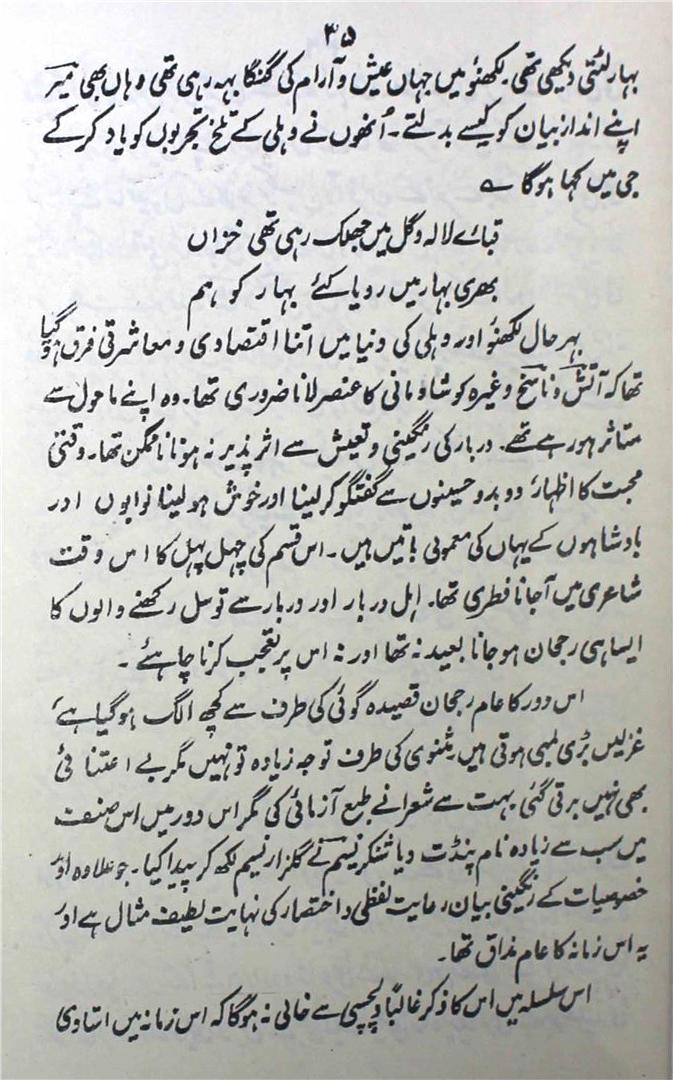 ۳۵
بہار لٹتی دیکھی تھی۔ لکھنؤ میں جہاں عیش و آرام کی گنگا بہہ رہی تھی وہاں بھی میر
اپنے انداز بیان کو کیسے بدلتے۔ اُنھوں نے دہلی کے تلخ تجربوں کو یاد کر کے
جی میں کہا ہوگا ؎
قبائے لالہ و گل میں جھلک رہی تھی خزاں
بھری بہار میں رویا کئے بہار کو ہم
بہر حال لکھنؤ اور دہلی کی دنیا میں اتنا اقتصادی و معاشرتی فرق ہو گیا
تھا کہ آتش و ناسخ وغیرہ کو شادمانی کا عنصر لانا ضروری تھا۔ وہ اپنے ماحول سے
متاثر ہو رہے تھے۔ دربار کی رنگینی و تعیش سے اثر پذیر نہ ہونا ناممکن تھا۔ وقتی
محبت کا اظہار دوبدو حسینوں سے گفتگو کر لینا اور خوش ہو لینا نوابوں اور
بادشاہوں کے یہاں کی معمولی باتیں ہیں۔ اس قسم کی چہل پہل کا اس وقت
شاعری میں آجانا فطری تھا۔ اہل دربار اور دربار سے توسل رکھنے والوں کا
ایسا ہی رجحان ہو جانا بعید نہ تھا اور نہ اس پر تعجب کرنا چاہئے ۔
اس دور کا عام رجحان قصیدہ گوئی کی طرف سے کچھ الگ ہو گیا ہے
غزلیں بڑی لمبی ہوتی ہیں مثنوی کی طرف توجہ زیادہ تو نہیں مگر بے اعتنائی
بھی نہیں برتی گئی بہت سے شعرا نے طبع آزمائی کی مگر اس دور میں اس صنعت
میں سب سے زیادہ نام پنڈت دیا شنکر نسیم نے گلزار نسیم لکھ کر پیدا کیا۔ جو علاوہ اور
خصوصیات کے رنگینی بیان رعایت لفظی و اختصار کی نہایت لطیف مثال ہے اور
یہ اس زمانہ کا عام مذاق تھا۔
اس سلسلہ میں اس کا ذکر غالباً دلچسپی سے خالی نہ ہوگا کہ اس زمانہ میں استادی